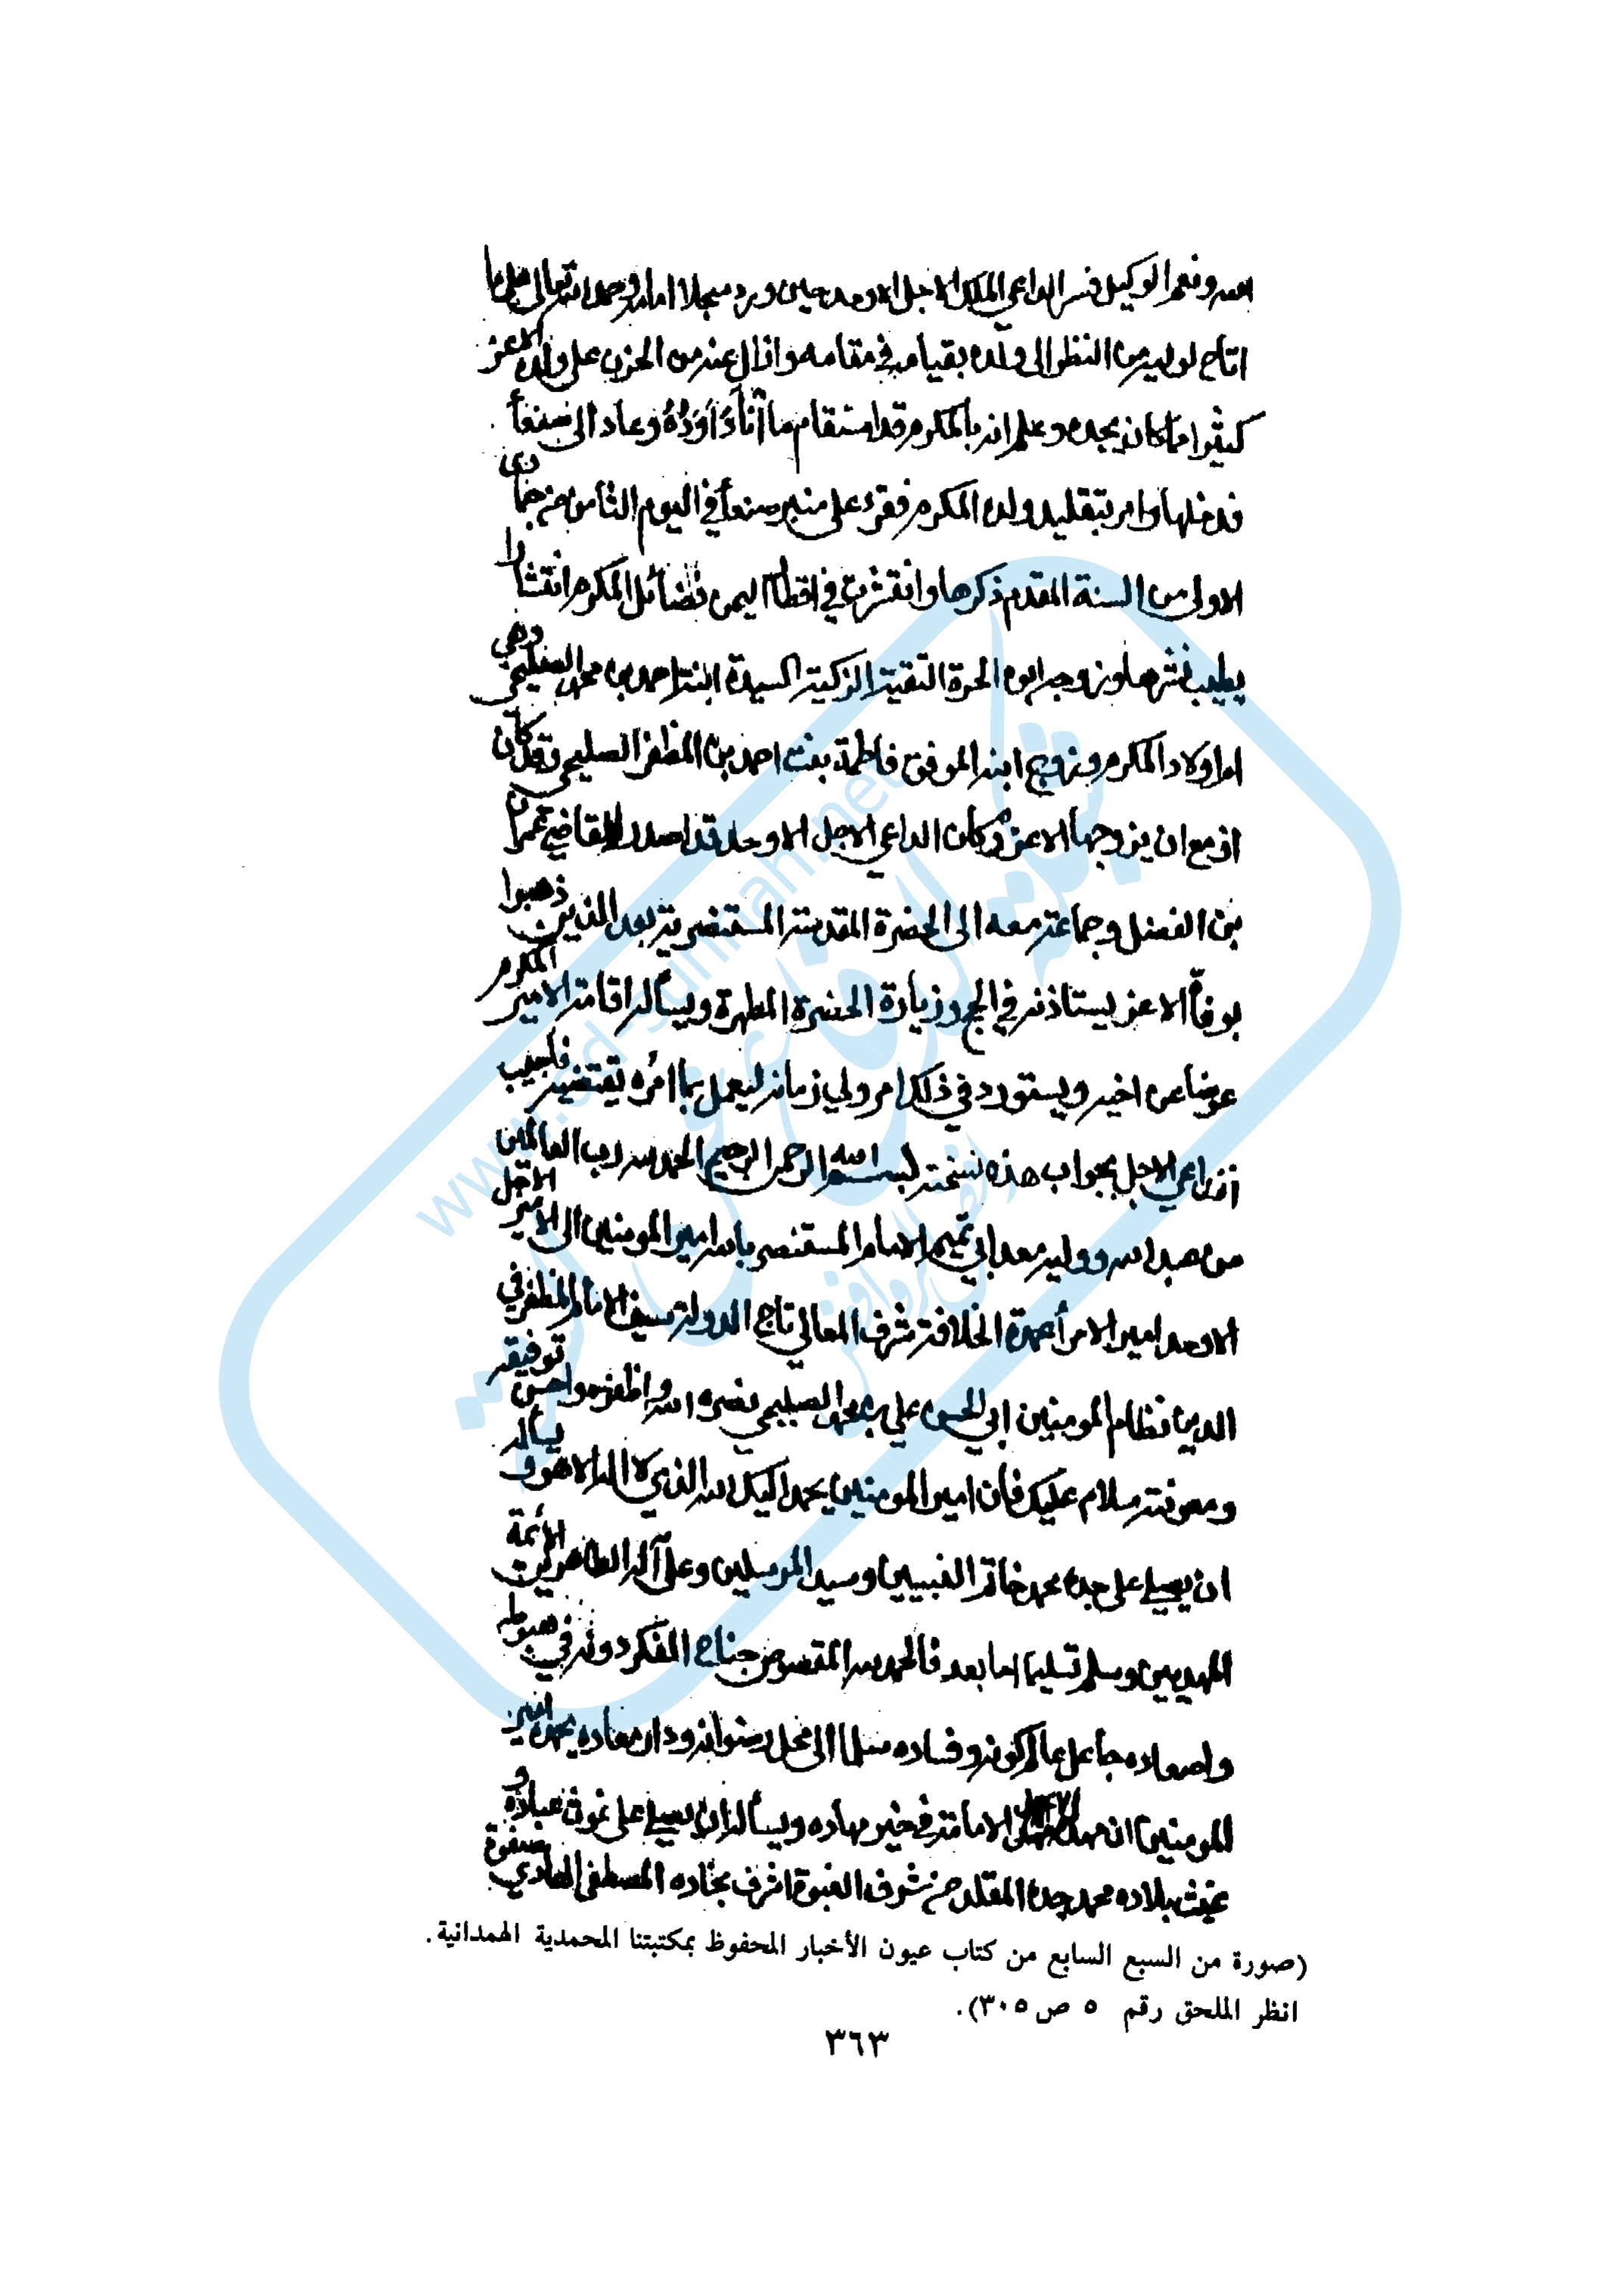 الله ونعم الوكيل فسر الداعي الملك الاجل الاوحد حين ورد سجلا امامه وحمد الله تعالى على ما
اتاح لوليه من النظر الى ولده بقيامه في مقامه وازال عنه من الحزن على ولده الاعز
كثيرا مما كان يجده وعلم انه بالمكرم قد استقام ما اناد اوده وعاد الى صنعأ
فدخلها وامر بتقليد ولده المكرم فقرء على منبر صنعأ في اليوم الثامن من جمادى
الاولى من السنة المقدم ذكرها وانتشرت في اقطار اليمن فضائل المكرم انتشارا
يطيب نشرها وزوجه ابوه الحرة التقية الزكية السيدة ابنة احمد بن محمد الصليحي وهي
ام اولاد المكرم وزوج ابنه الموفق فاطمة بنت احمد بن المظفر الصليحي وقد كان
ازمع ان يزوجها الاعز وكان الداعي الاجل الاوحد قد اصدر القاضي عمران
بن الفضل وجماعة معه الى الحضرة المقدسة المستنصرية بعد الذين ذهبوا
بوفاة الاعز يستاذنه في الحج وزيارة الحضرة المطهرة ويسأله اقامة الامير المكرم
عوضا عن اخيه ويستورد في ذلك امر ولي زمانه ليعمل بما امره يقتضيه فاجيب
الداعي الاجل بجواب هذه نسخته بسم الله الرحمن الرحيم الحمد لله رب العالمين
من عبد الله ووليه معد ابي تميم الامام المستنصر بالله امير المومنين الى الامير الاجل
الاوحد امير الامرأ عمدة الخلافة شرف المعالي تاج الدولة سيف الامام المظفر في
الدين نظام المومنين ابي الحسن علي بن محمد الصليحي نصره الله واظفره واحسن توفيقه
ومعونته سلام عليك فأن امير المومنين يحمد اليك الله الذي لا اله الا هو ويسأله
ان يصلي على جده محمد خاتم النبيين وسيد المرسلين وعلى آله الطاهرين الأئمة
المهديين وسلم تسليما اما بعد فالحمد لله المقصوص جناح الفكر دونه في هبوطه
واصعاده جاعل عالم كونه وفساده سلما الى محل رضوانه ودار معاده يحمده امير
المومنين ان مهد له الامامة في خير مهاده ويسأله ان يصلي على غوث عباده و
غيث بلاده محمد جده المقلد من شرف النبوة اشرف نجاده المصطفى الهادي صفوة
(صورة من السبع السابع من كتاب عيون الأخبار المحفوظ بمكتبتنا المحمدية الهمدانية.
انظر الملحق رقم ٥ ص ٣٠٥).
٣٦٣